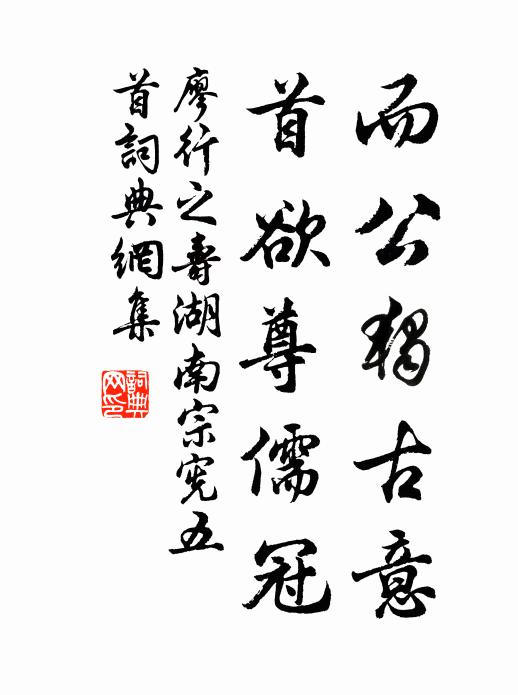 而公獨古意
首欲尊儒冠
廖行之壽湖南宗宪五
首詞典網集
詞典网印